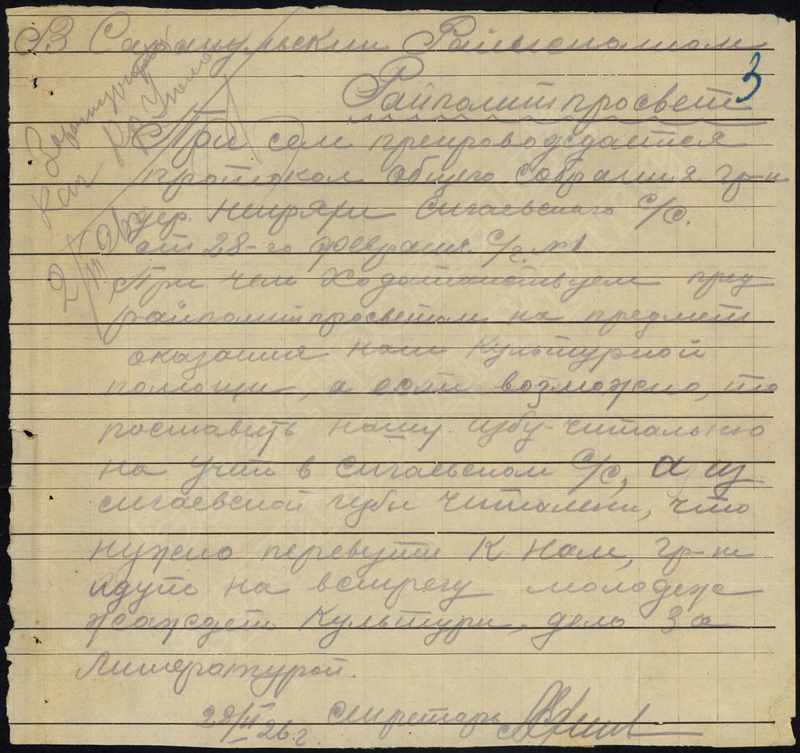 3
В Сарапульский Райисполком
Райполитпросвет
При сем препровождается
протокол общего собрания гр-н
дер. Непряхи Сигаевского с/с.
от 28-го февраля с/г. №1
При чем ходотайствуем пред
райполитпросветом на предмет
оказания нам культурной
помощи, а если возможно, то
поставить нашу избу-читальню
на учет в Сигаевском с/с, а из
сигаевской избы читальни, что
нужно перевути к нам, гр-не
идут на встречу молодеж
жаждет культури, дело за
литературой.
29/II 26 г. секретарь